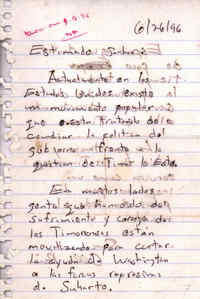 6/26/96
Estimado Suharto
Actualmente en los
Estados Unidos existe
un movimiento popular
que está tratando de
cambiar la política del
gobierno frente a la
question de Timor le Este.
En muchos lados
gente que
sufrimiento y coraje de
los Timorenses están
movilizando para cortar
la ayuda de Washington
a las fuerzas represivas
de Suharto.